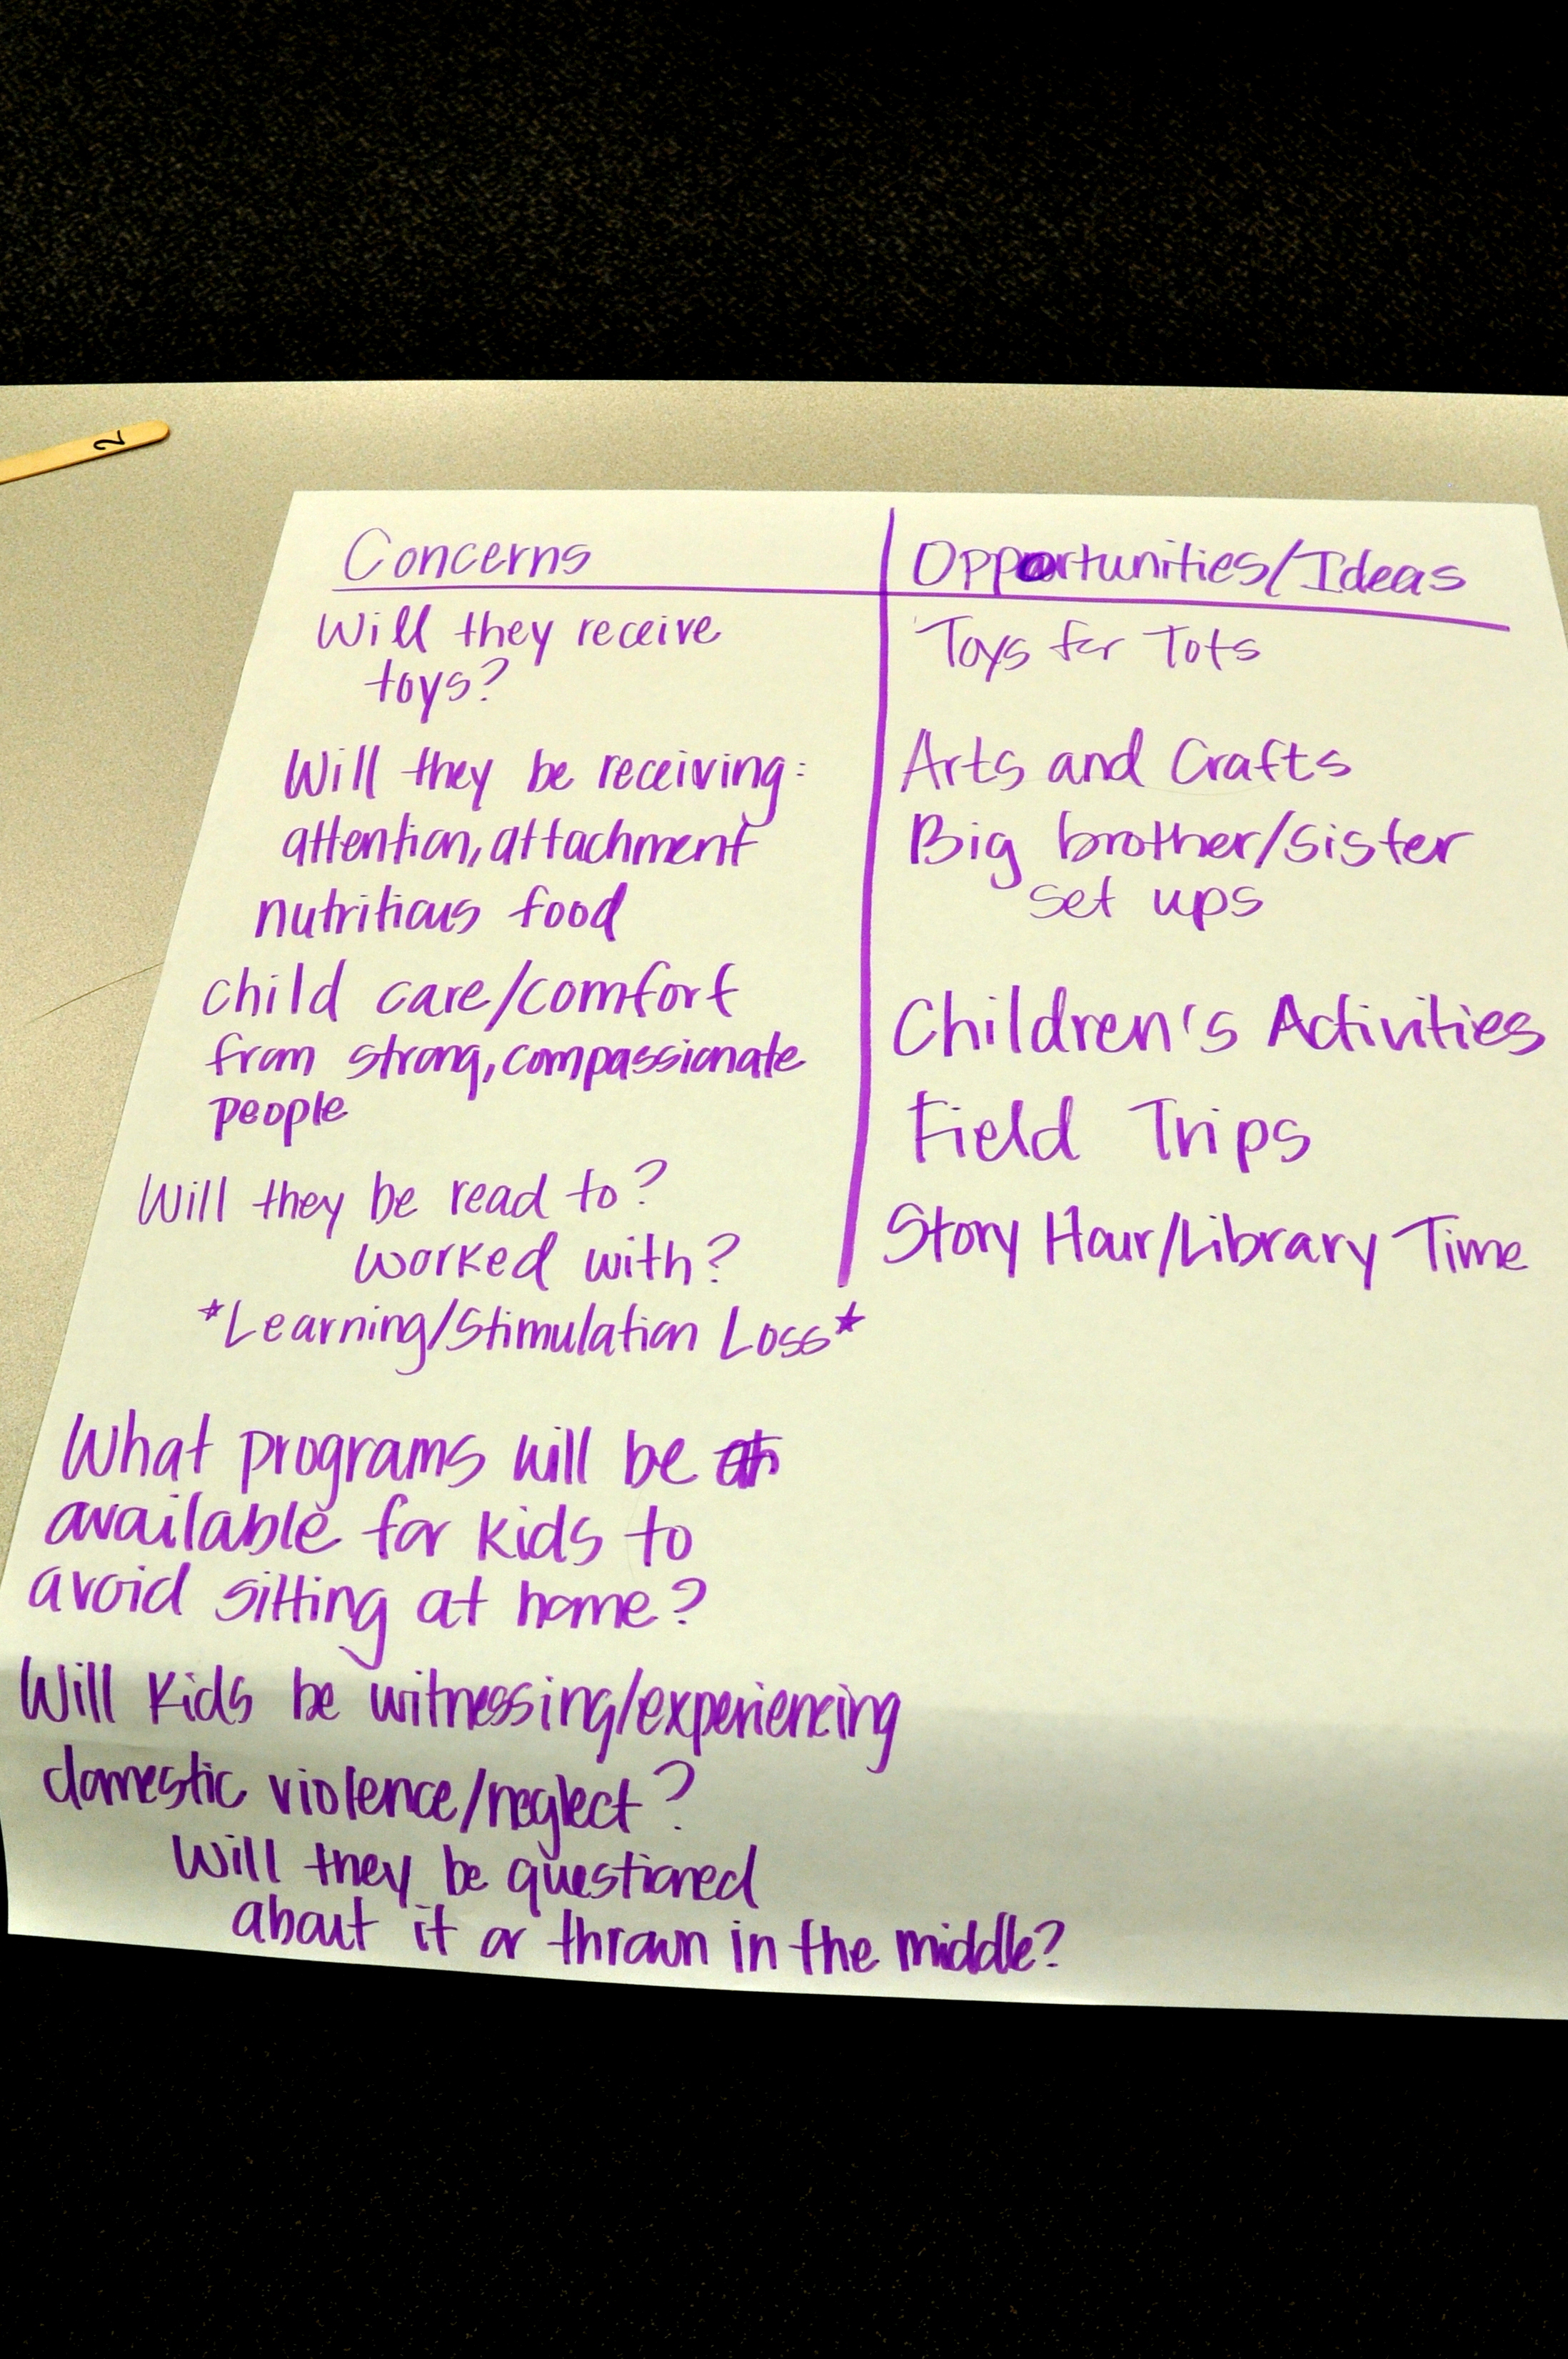 2
Concerns
Will they receive
toys?
Will they be receiving:
attention, attachment
nutritious food
child care/comfort
from strong, compassionate
people
Will they be read to?
worked with?
*Learning/Stimulation Loss*
What programs will be
available for kids to
avoid sitting at home?
Will kids be witnessing/experiencing
domestic violence/neglect?
Will they be questioned
about it or thrown in the middle?
Opportunities/Ideas
Toys for Tots
Arts and Crafts
Big brother/sister
set ups
Children's Activities
Field Trips
Story Hour/Library Time